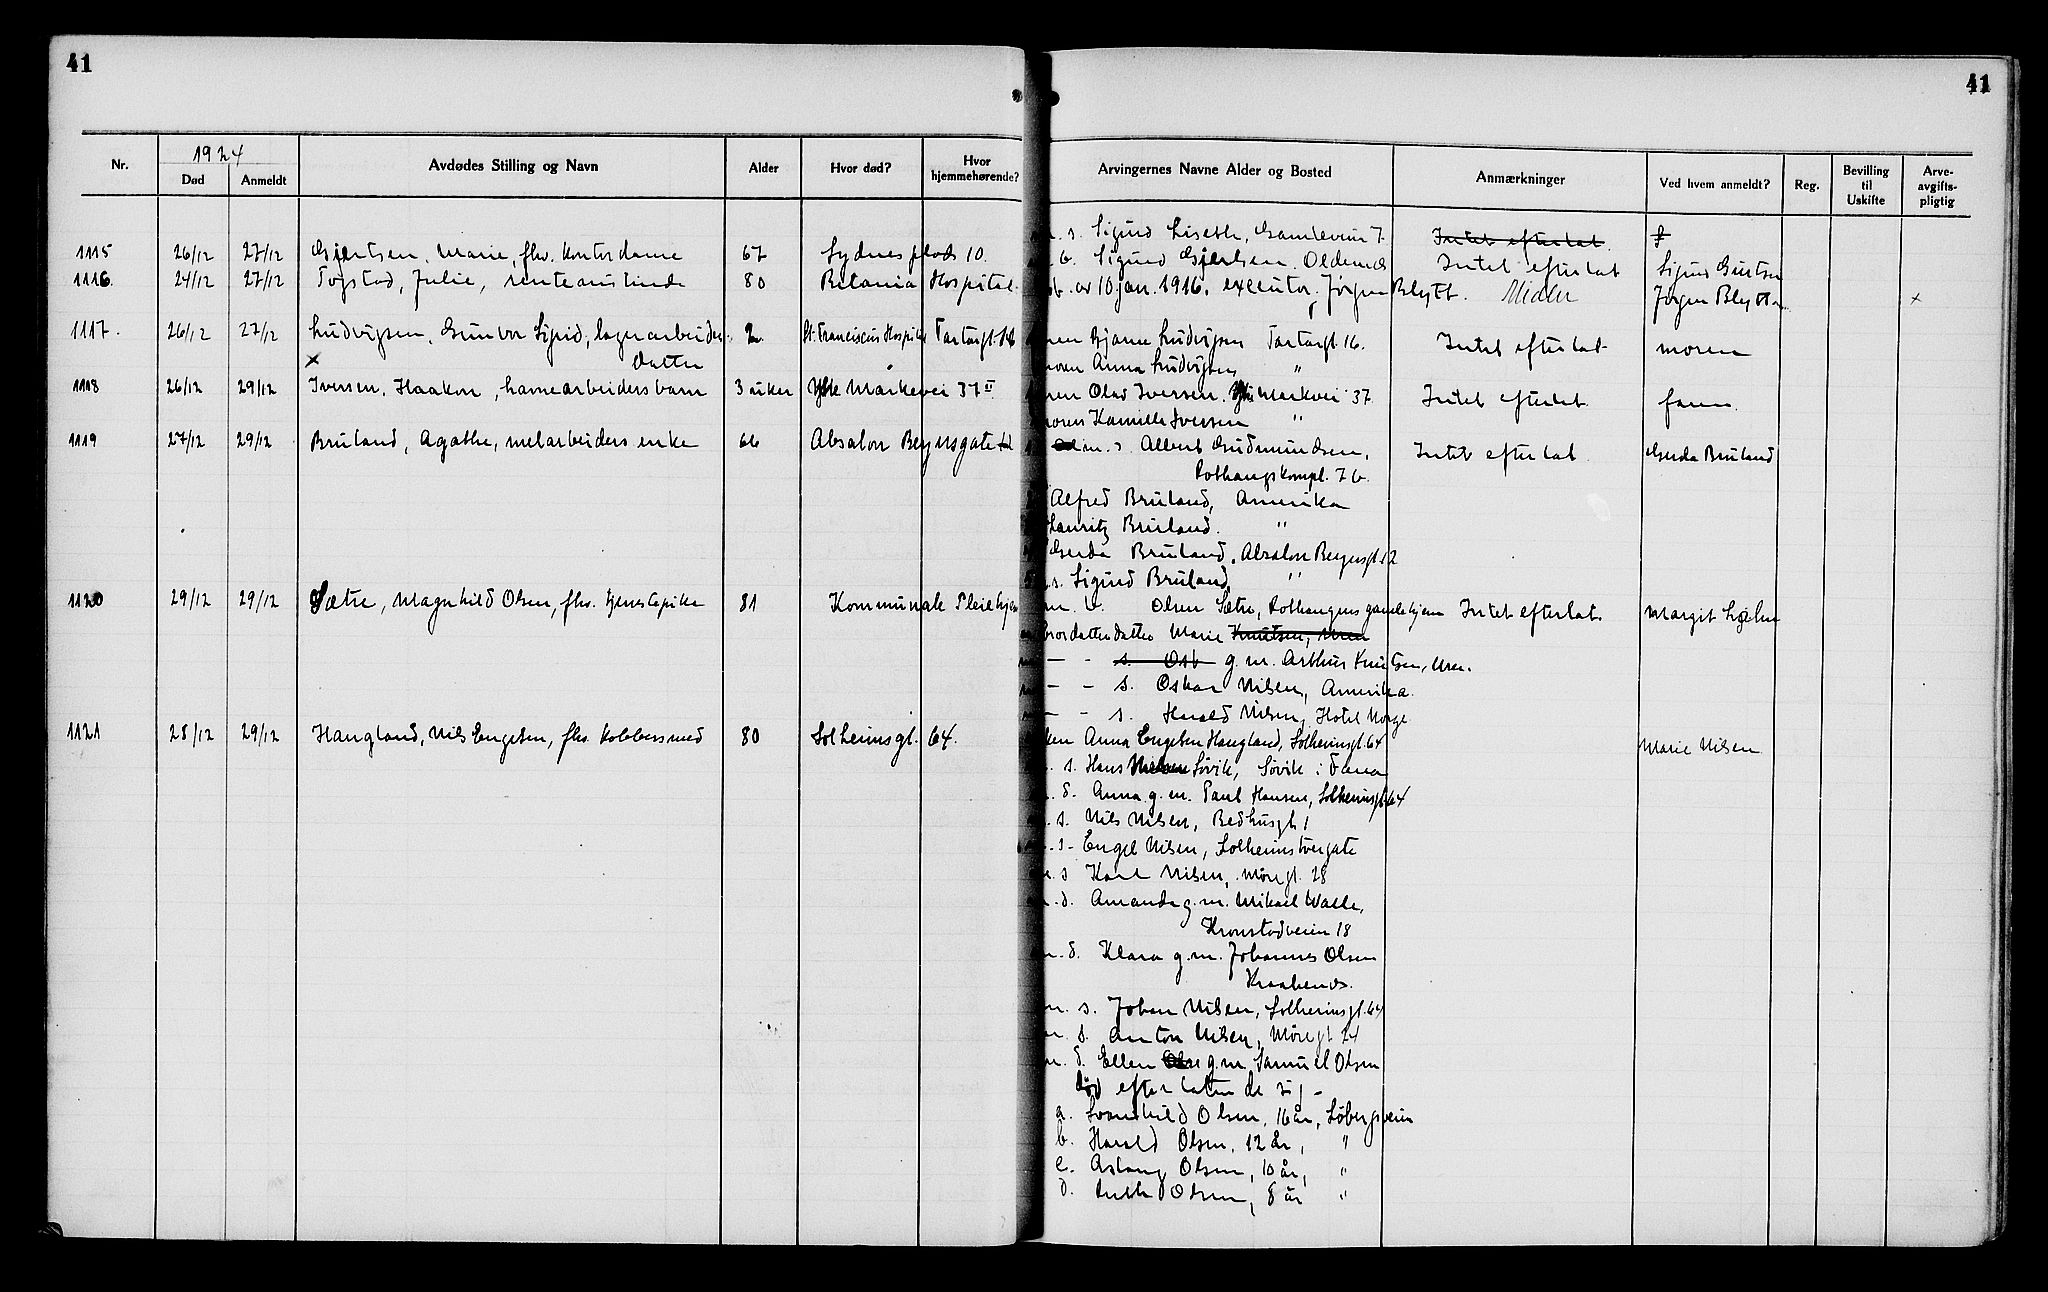 41
41
Nr.
1924
Død
Anmeldt
Avdødes Stilling og Navn
Alder
Hvor død?
Hvor hjemmehørende?
Arvingernes Navne Alder og Bosted
Anmærkninger
Ved hvem anmeldt?
Reg.
Bevilling til Uskifte
Arve-avgifts-pligtig
s. Sigurd Liseth, 7. Intet efterlat.
1115 26/12 27/12 Gjertsen, Marie, fhv. kontordame 67 Sydnesplads 10. b. Sigurd Gjertsen. Intet efterlat Sigurd
1116. 24/12 27/12 Togstad, Julie, 80 Betania Hospital av 10 jan. 1916. executor, Jørgen Blytt. Midler Jørgen Blytt x
1117. 26/12 27/12 Ludvigsen, Gunvor Sigrid, lagerarbeider 2 St. Franciscus Hospital Tartargt. 16 Bjarne Ludvigsen Tartargt. 16. Intet efterlat moren
x datter moren Anna Ludvigsen "
1118 26/12 29/12 Iversen, Haakon, havnearbeiders barn 3 uker Markevei 37 II Olav Iversen. Markevei 37 Intet efterlat faren.
moren Kamilla Iversen "
1119 27/12 29/12 Bruland, Agathe, enke 66 Absalon Beyersgate m. s. Albert Gudmundsen, Intet efterlat Gerda Bruland
Rothaugskompl. 7 b.
Alfred Bruland, Amerika
Lauritz Bruland. "
Gerda Bruland, Absalon Beyersgt. 12
s. Sigurd Bruland "
1120 29/12 29/12 Sætre, Magnhild Olsen, fhv. tjenestepike 81 Kommunale Pleiehjem Olsen Sætre, Rothaugens gamlehjem Intet efterlat. Margit
brordatterdatter Marie Knutsen, Uren
— - s. Osk g. m. Arthur Knutsen, Uren.
— - s. Oskar Nilsen, Amerika.
— - s. Harald Nilsen, Hotel Norge
1121 28/12 29/12 Haugland, Nils Engelsen, fhv. kobbersmed 80 Solheimsgt. 64. Anna Engelsen Haugland, Solheimsgt. 64 Marie Nilsen
s. Hans Søvik, Søvik i Fana
d. Anna g. m. Paul Hansen, Solheimsgt. 64
s. Nils Nilsen, Bedhusgt. 1
s. Engel Nilsen, Solheimstvergate
s. Karl Nilsen, Møregt. 28
d. Amanda g. m. Mikael Walle,
Kronstadveien 18
d. Klara g. m. Johannes Olsen
s. Johan Nilsen, Solheimsgt. 64
s. Anton Nilsen, Møregt. 24
d. Ellen g. m. Samuel Olsen
død efterlatende sig –
a. Svanhild Olsen, 16 år, Løbergsveien
b. Harald Olsen, 12 år, "
c. Aslaug Olsen, 10 år, "
d. Ruth Olsen, 8 år "